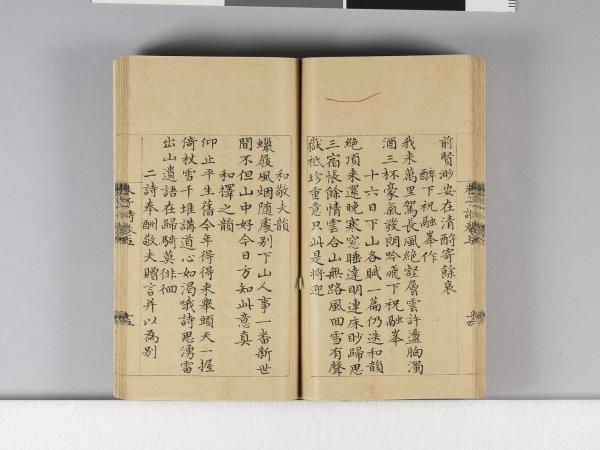 前賢渺安在清酹寄餘哀
醉下祝融峯作
我来萬里駕長風絶壑層雲許盪胸濁
酒三杯豪氣發朗吟飛下祝融峯
十六日下山各賦一篇仍迭和韻
絶頂来還晚寒窓睡達明連床眇歸思
三宿悵餘情雲合山無路風回雪有聲
嶽祗珍重意只此是將迎
和敬夫韻
蠟屐風烟随處别下山人事一番新世
間不但山中好今日方知此意真
和擇之韻
仰止平生舊今年得得来舉頭天一握
倚杖雪千堆講道心如渴哦詩思湧雷
出山遺語在歸騎莫徘徊
二詩奉酬敬夫贈言并以為别